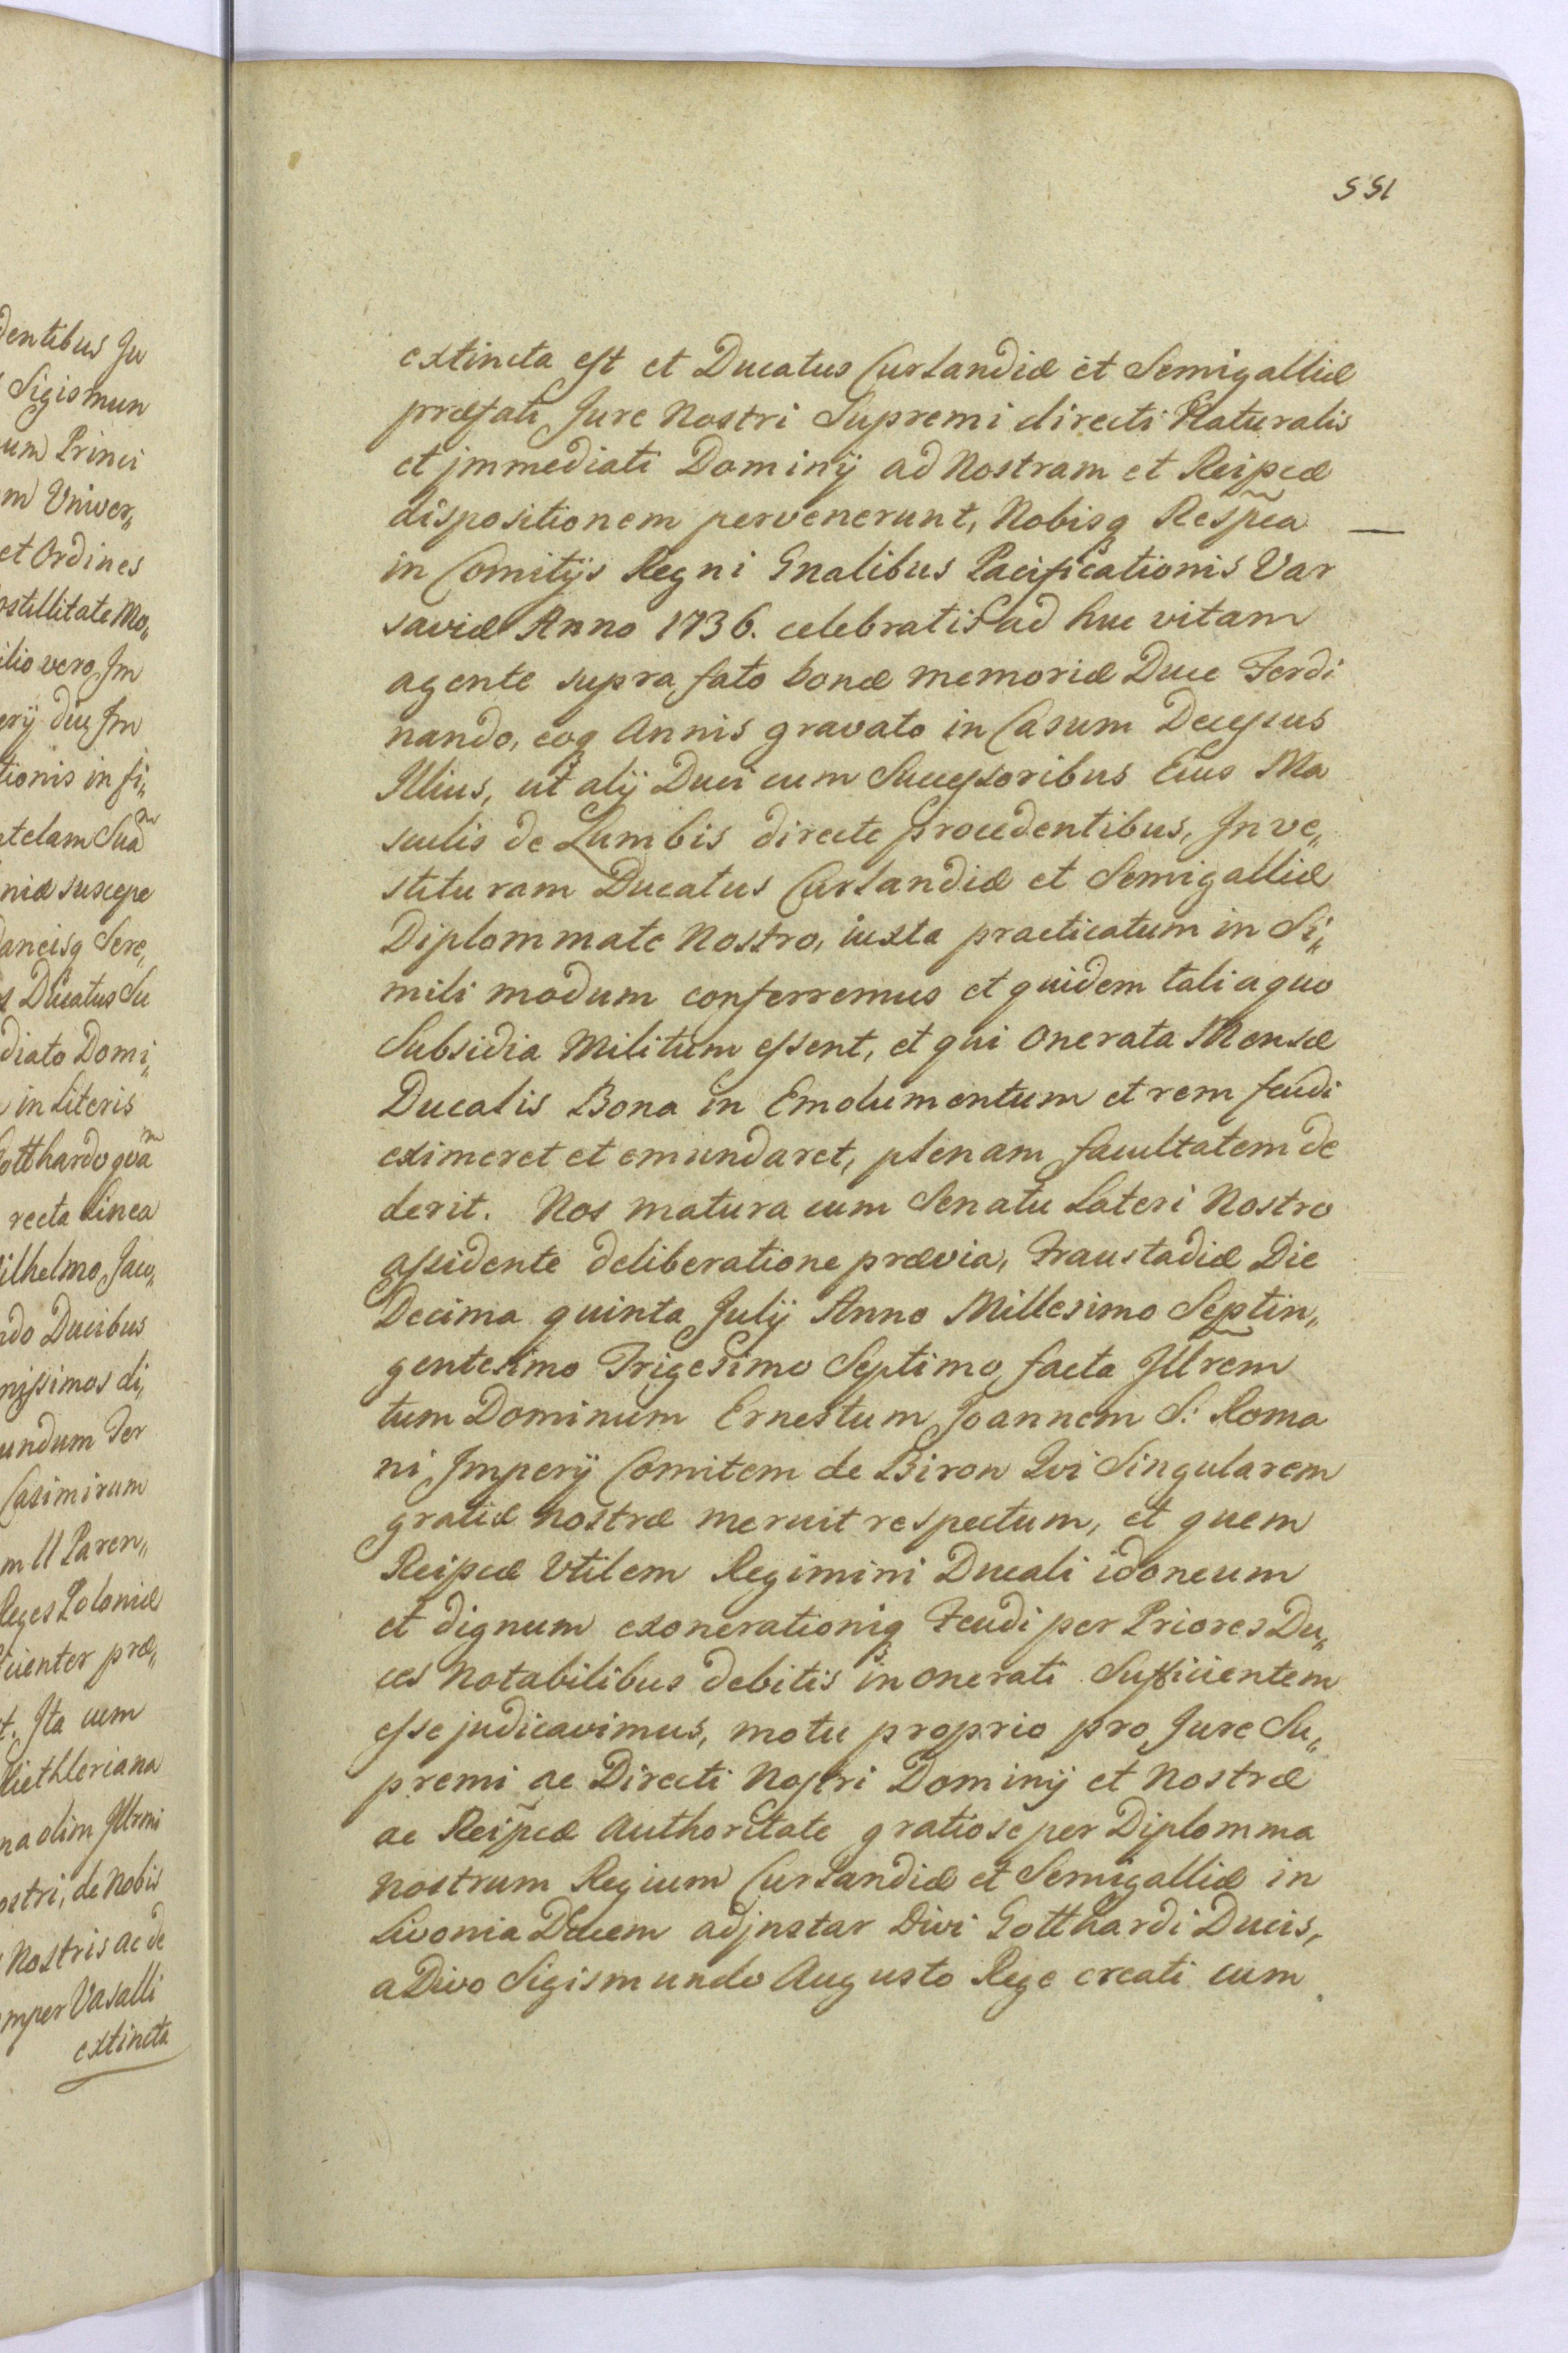 551
extincta est et Ducatus Curlandiæ et Semigalliæ
præfati Jure Nostri Supremi directi Naturalis
et jmmediati Dominij ad Nostram et Reipcæ
dispositionem pervenerunt, Nobisq Respca
in Comitijs Regni Gnalibus Pacificationis Var
saviæ Anno 1736. celebratis ad huc vitam
agente supra fato bonæ memoriæ Duce Ferdi
nando, eoq Annis gravato in Casum Decessus
Illius, ut alij Duci cum Successoribus Eius Ma
sculis de Lumbis directe procedentibus, Inve„
stituram Ducatus Curlandiæ et Semigalliæ
Diplommate Nostro, iuxta practicatum in Si„
mili modum conferremus et quidem tali a quo
Subsidia Militum essent, et qui Onerata Mensæ
Ducalis Bona in Emolumentum et rem feudi
eximeret et emundaret, plenam facultatem de
derit. Nos matura cum Senatu Lateri Nostro
assidente deliberatione prævia, Fraustadiæ Die
Decima quinta Julij Anno Millesimo Septin„
gentesimo Trigesimo Septimo facta Jllrem
tum Dominum Ernestum Joannem S: Roma
ni Jmperij Comitem de Biron Qvi Singularem
gratiæ nostræ meruit respectum, et quem
Reipcæ Vtilem Regimini Ducali idoneum
et dignum exonerationiq Feudi per Priores Du„
ces Notabilibus debitis inonerati Sufficientem
esse judicavimus, motu proprio pro Jure Su„
premi ac Directi Nostri Dominij et Nostræ
ac Reipcæ Authoritate gratiose per Diplomma
nostrum Regium Curlandiæ et Semigalliæ in
Livonia Ducem adjnstar Divi Gotthardi Ducis,
a Divo Sigismundo Augusto Rege creati cum
dentibus Ju
Sigismun
um Princi
m Univer„
et Ordines
ostillitate Mo„
ilio vero Jm
erij diu Jm
tionis in fi„
telam Suam
niæ suscepe
Sere„
Ducatus Su
diato Domi„
in Literis
otthardo qvam
recta Linea
ilhelmo Jaco„
ndo Ducibus
nissimos di„
undum Ter
Casimirum
m II Paren„
Reges Poloniæ
cienter præ„
t. Ita cum
Kiethleriana
na olim Jllrmi
ostri, de Nobis
Nostris ac de
mper Vasalli
extincta